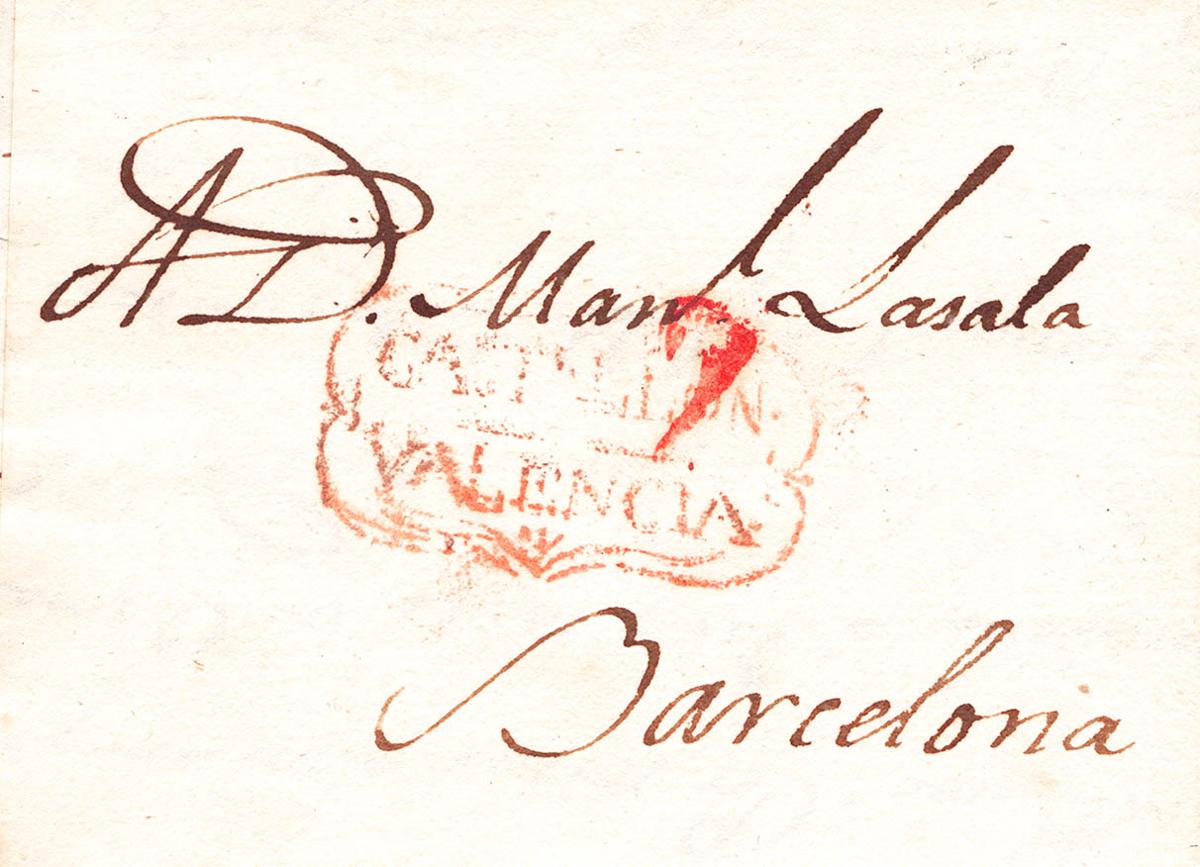 A D. Manl. Lasala
CASTELLON.
VALENCIA
Barcelona